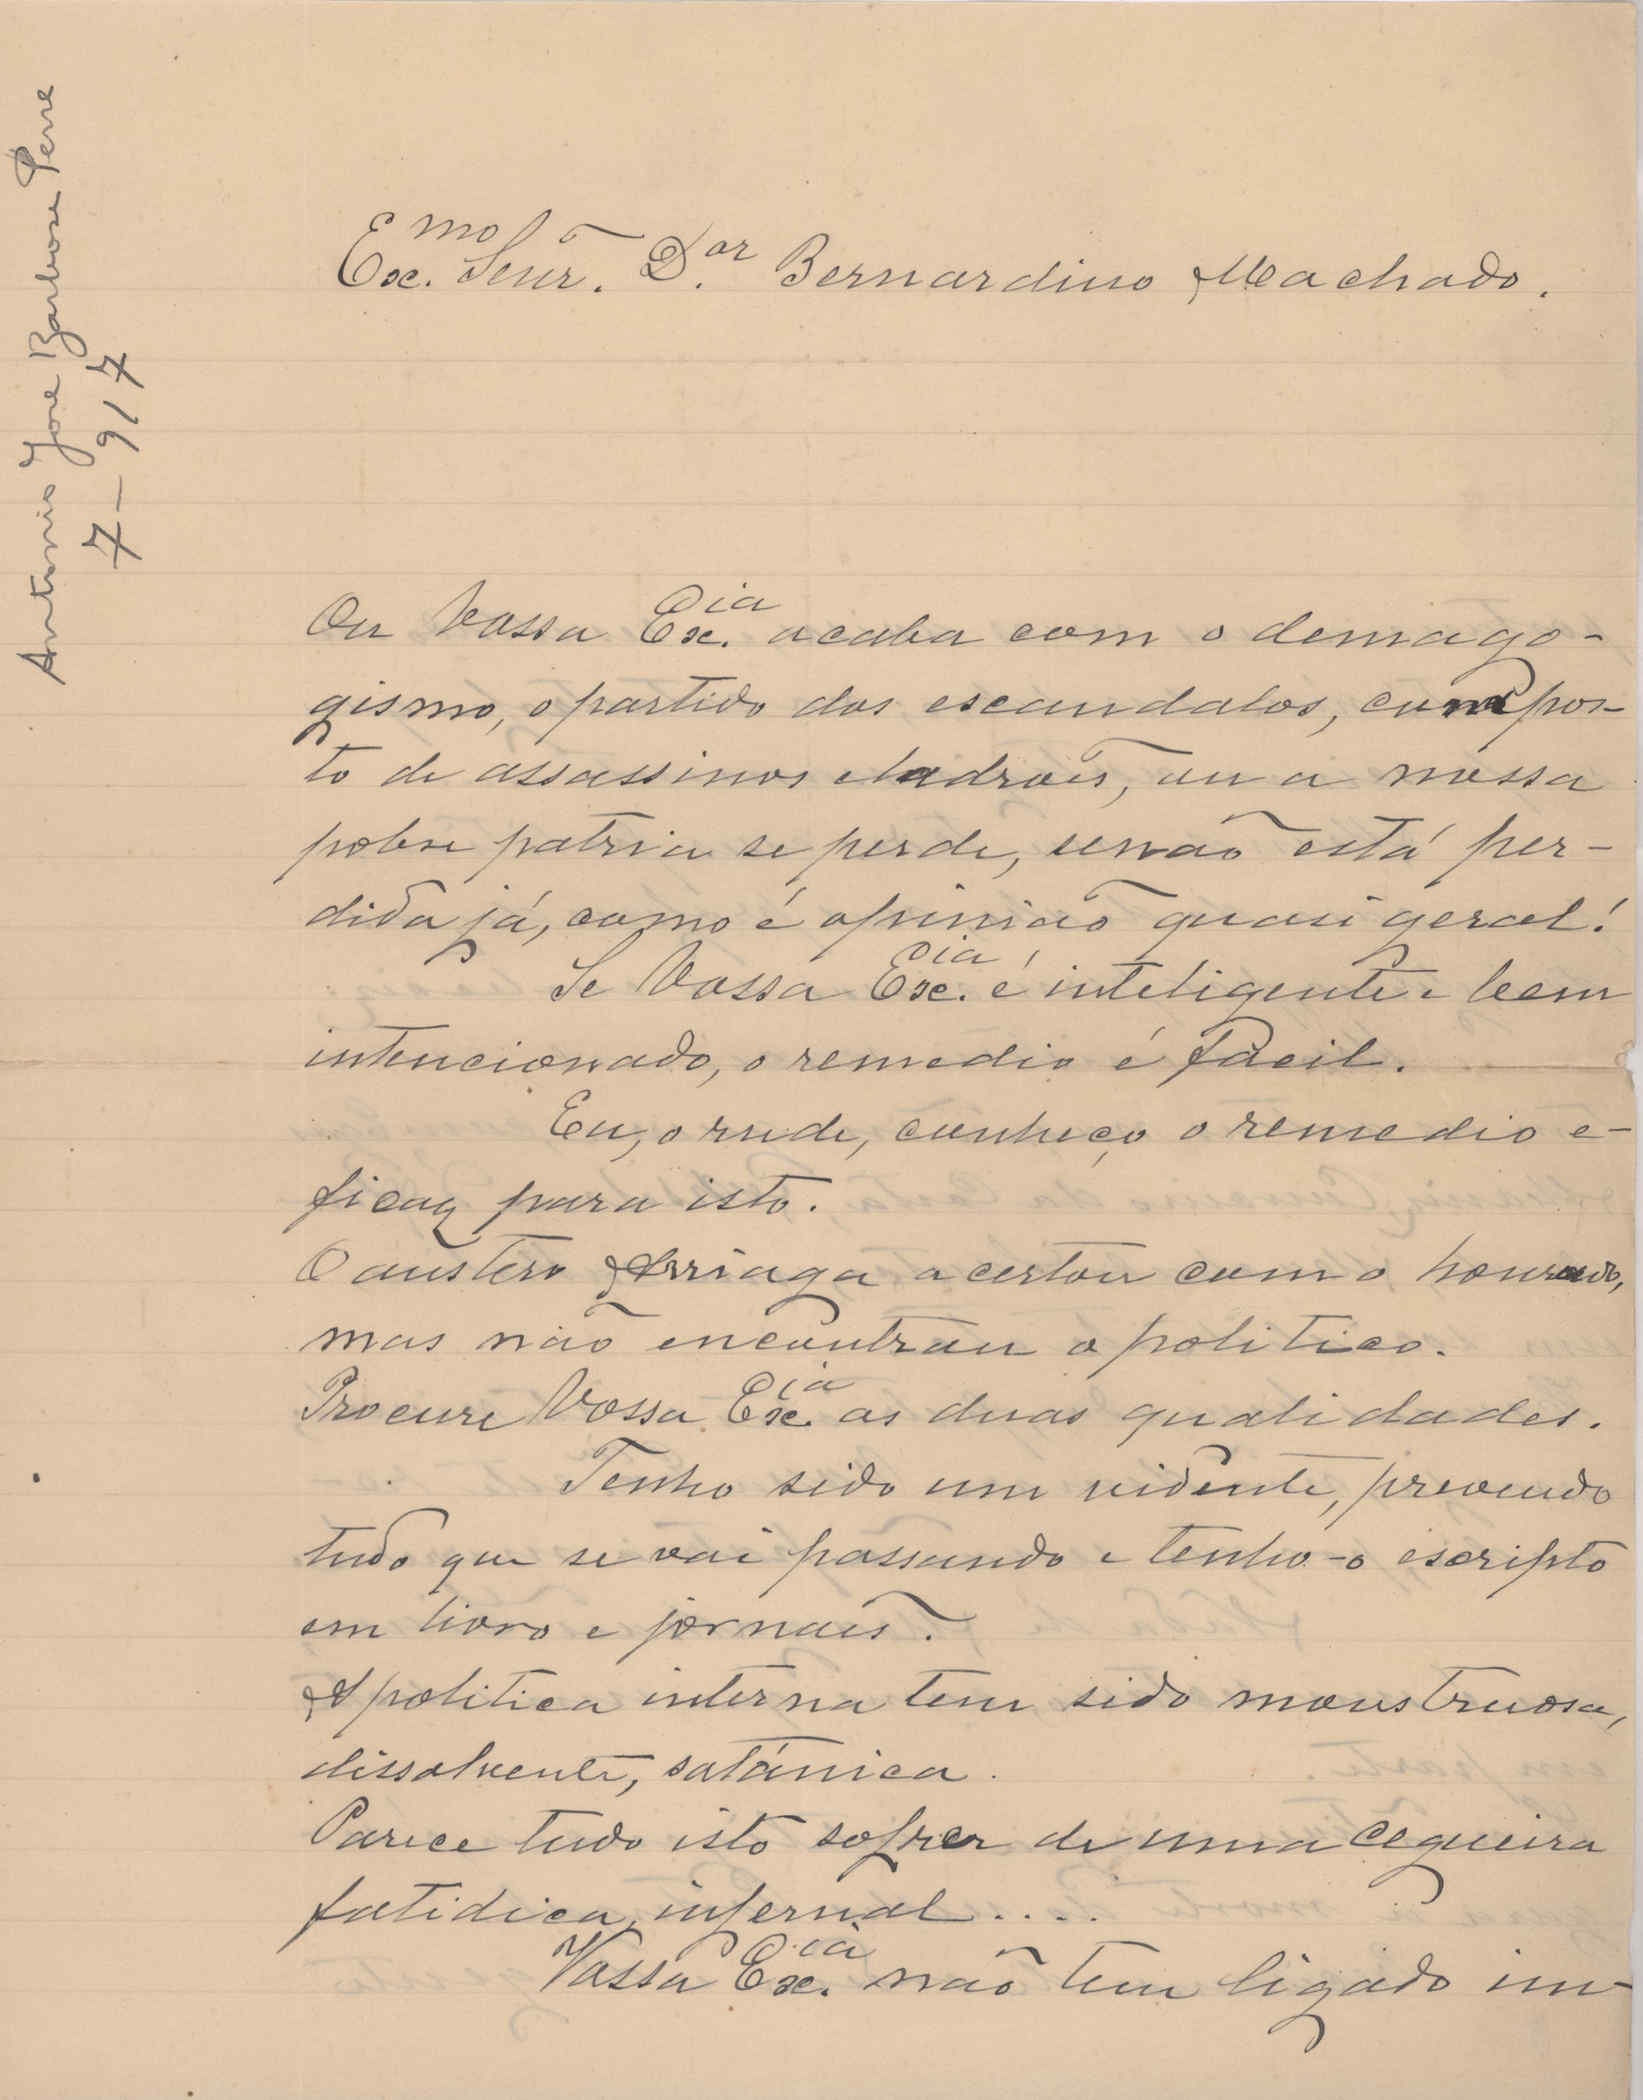 Antonio José Barbosa Perre
7-917
Exc.mo Senr. D.or Bernardino Machado.
Ou Vossa Exc.cia acaba com o demago-
gismo, o partido dos escandalos, compos-
to de assassinos e ladrois, ou a nossa
pobre patria se perde, senão está per-
dida já, como é opinião quasi geral!
Se Vossa Exc.cia é inteligente e bem
intencionado, o remedio é facil.
Eu, o rude, conheço o remedio e-
ficaz para isto.
O austero Arriaga acertou com o honrado,
mas não encontrou o politico.
Procure Vossa Exc.cia as duas qualidades.
Tenho sido um vidente, prevendo
tudo que se vai passando e tenho-o escripto
em livro e jornais.
A politica interna tem sido monstruosa,
dissolvente, satánica.
Parece tudo isto sofrer de uma cegueira
fatidica, infernal....
Vossa Exc.cia não tem ligado im-